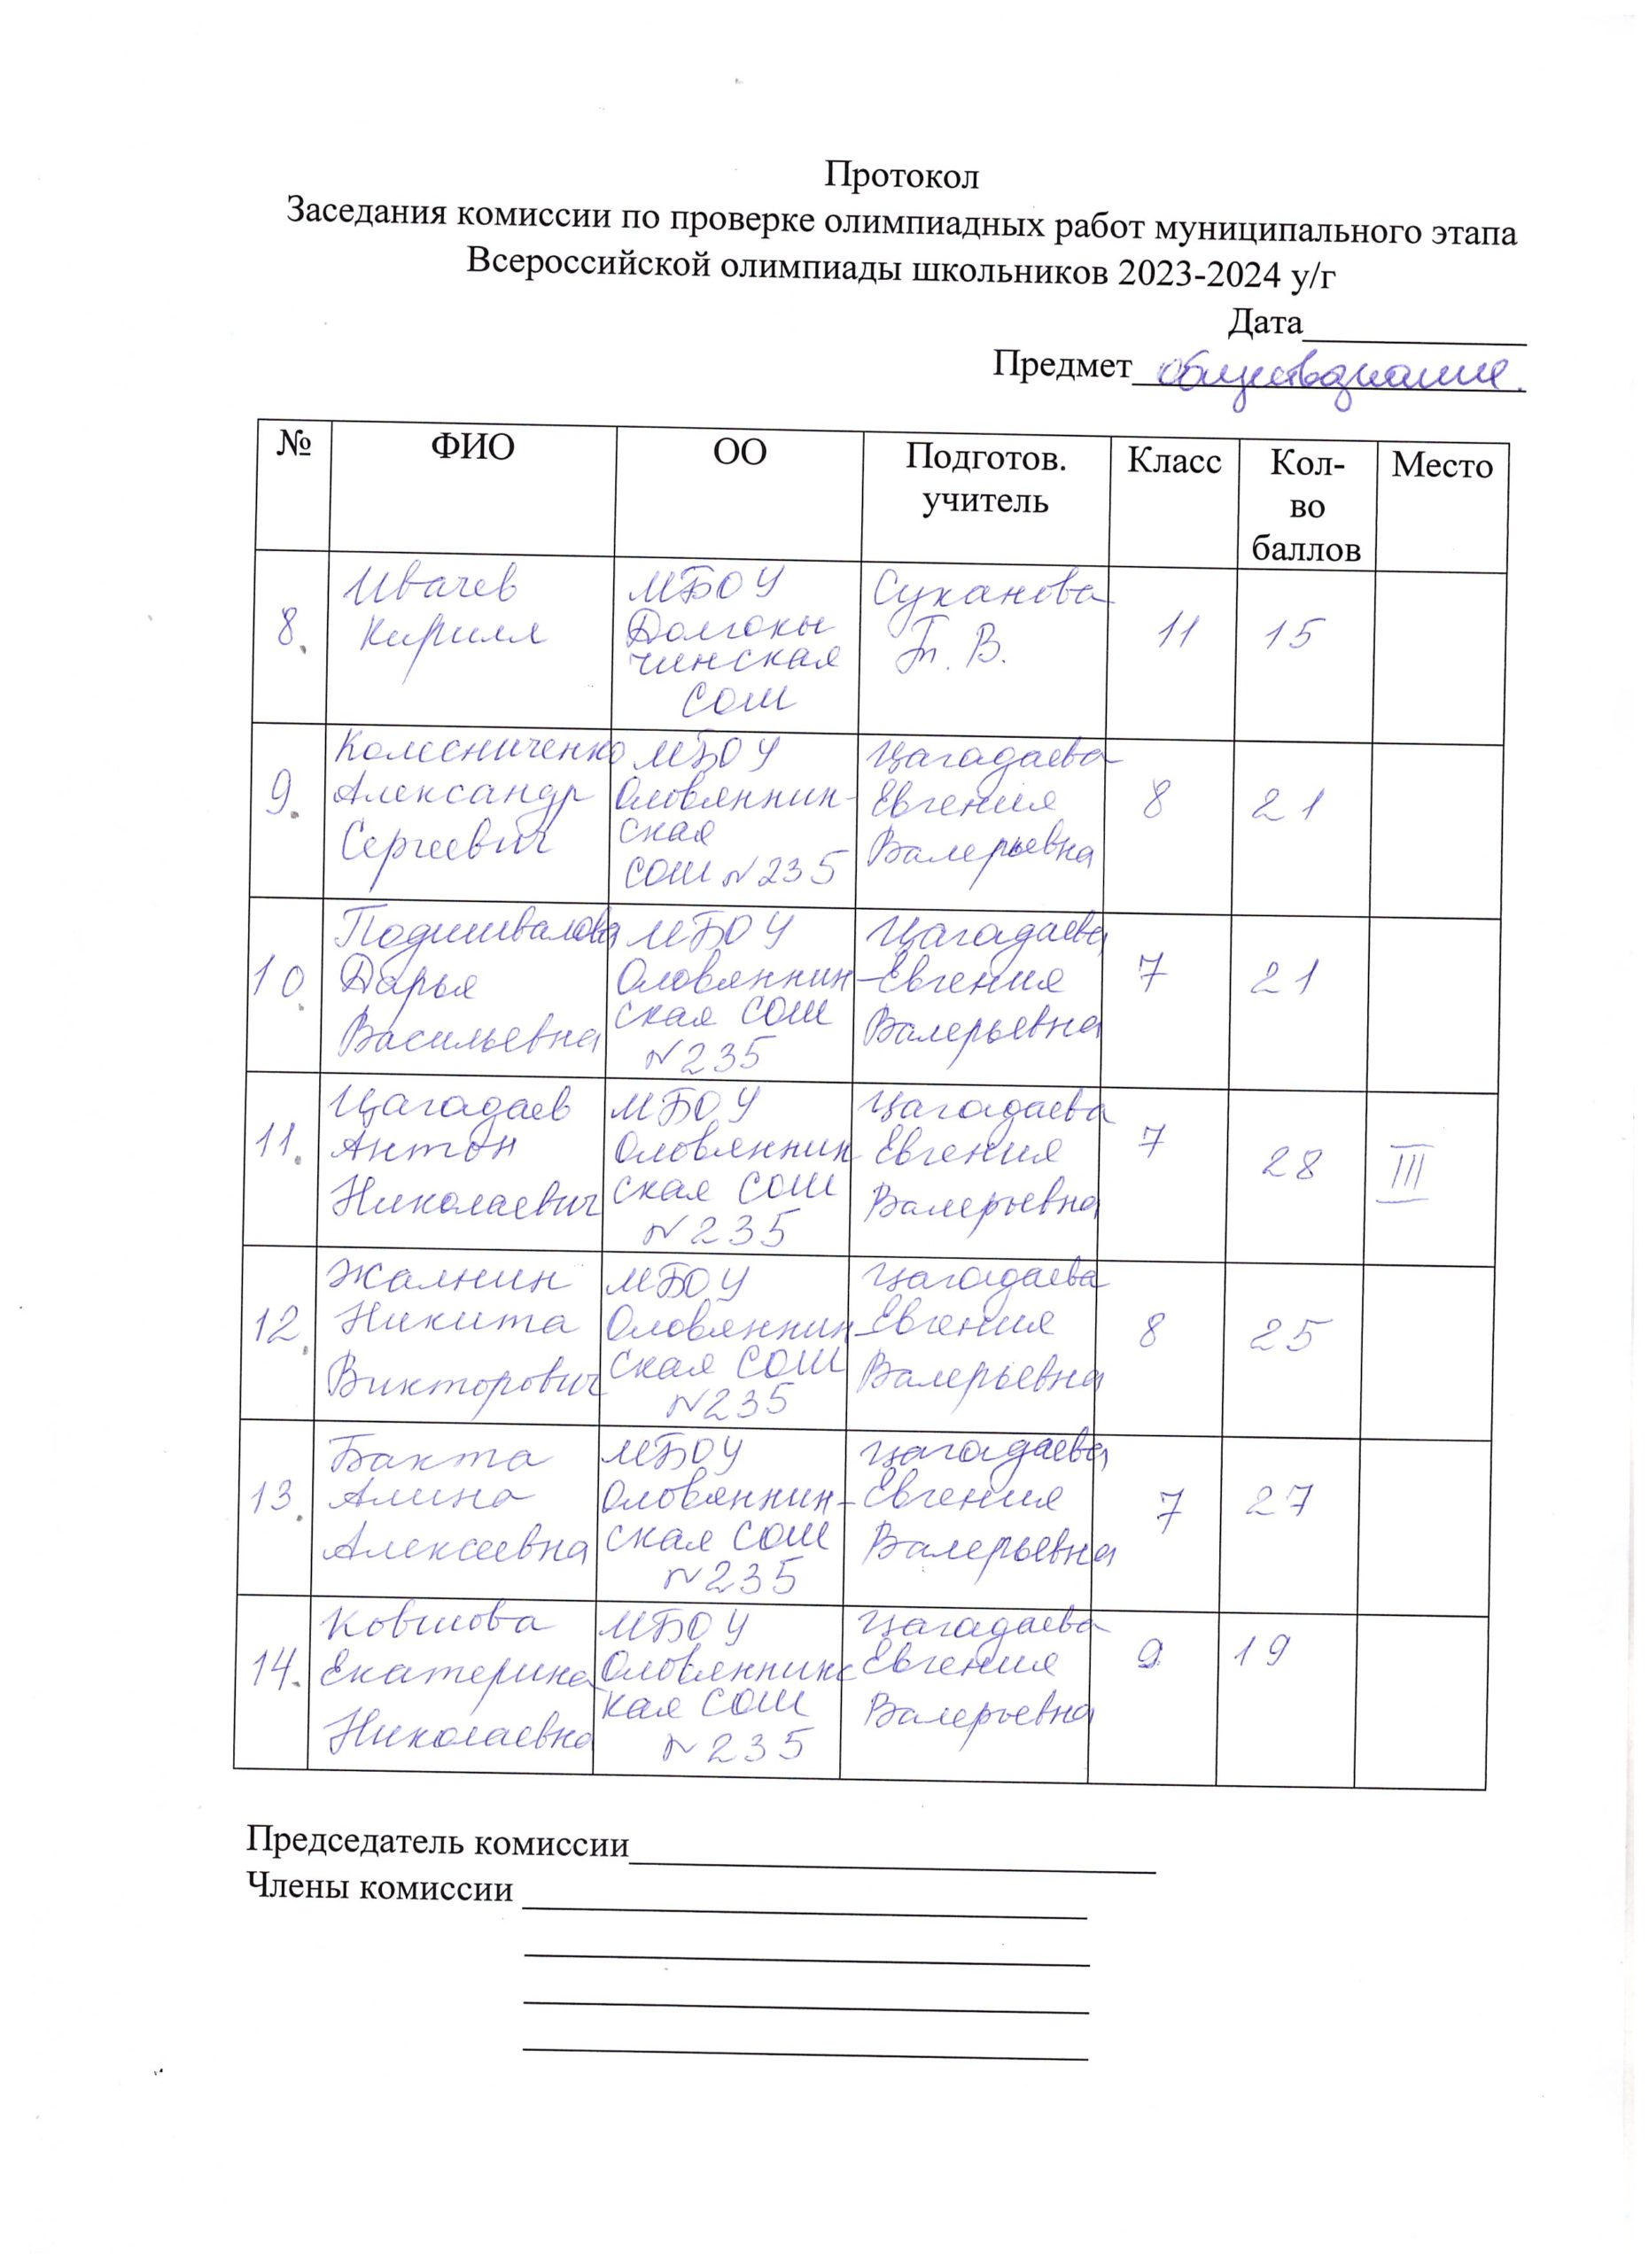 Протокол
Заседания комиссии по проверке олимпиадных работ муниципального этапа
Всероссийской олимпиады школьников 2023-2024 у/г
Дата
Предмет обществознание.
№ ФИО ОО Подготов. учитель Класс Кол-во баллов Место
8. Ивачев Кирилл МБОУ Долгокычинская СОШ Суханова Т. В. 11 15
9. Колесниченко Александр Сергеевич МБОУ Оловяннин-ская СОШ №235 Цагадаева Евгения Валерьевна 8 21
10. Подшивалова Дарья Васильевна МБОУ Оловяннин-ская СОШ №235 Цагадаева Евгения Валерьевна 7 21
11. Цагадаев Антон Николаевич МБОУ Оловяннинская СОШ №235 Цагадаева Евгения Валерьевна 7 28 III
12. Жалнин Никита Викторович МБОУ Оловяннин-ская СОШ №235 Цагадаева Евгения Валерьевна 8 25
13. Бакта Алина Алексеевна МБОУ Оловяннин-ская СОШ №235 Цагадаева Евгения Валерьевна 7 27
14. Ковшова Екатерина Николаевна МБОУ Оловяннинская СОШ №235 Цагадаева Евгения Валерьевна 9 19
Председатель комиссии
Члены комиссии